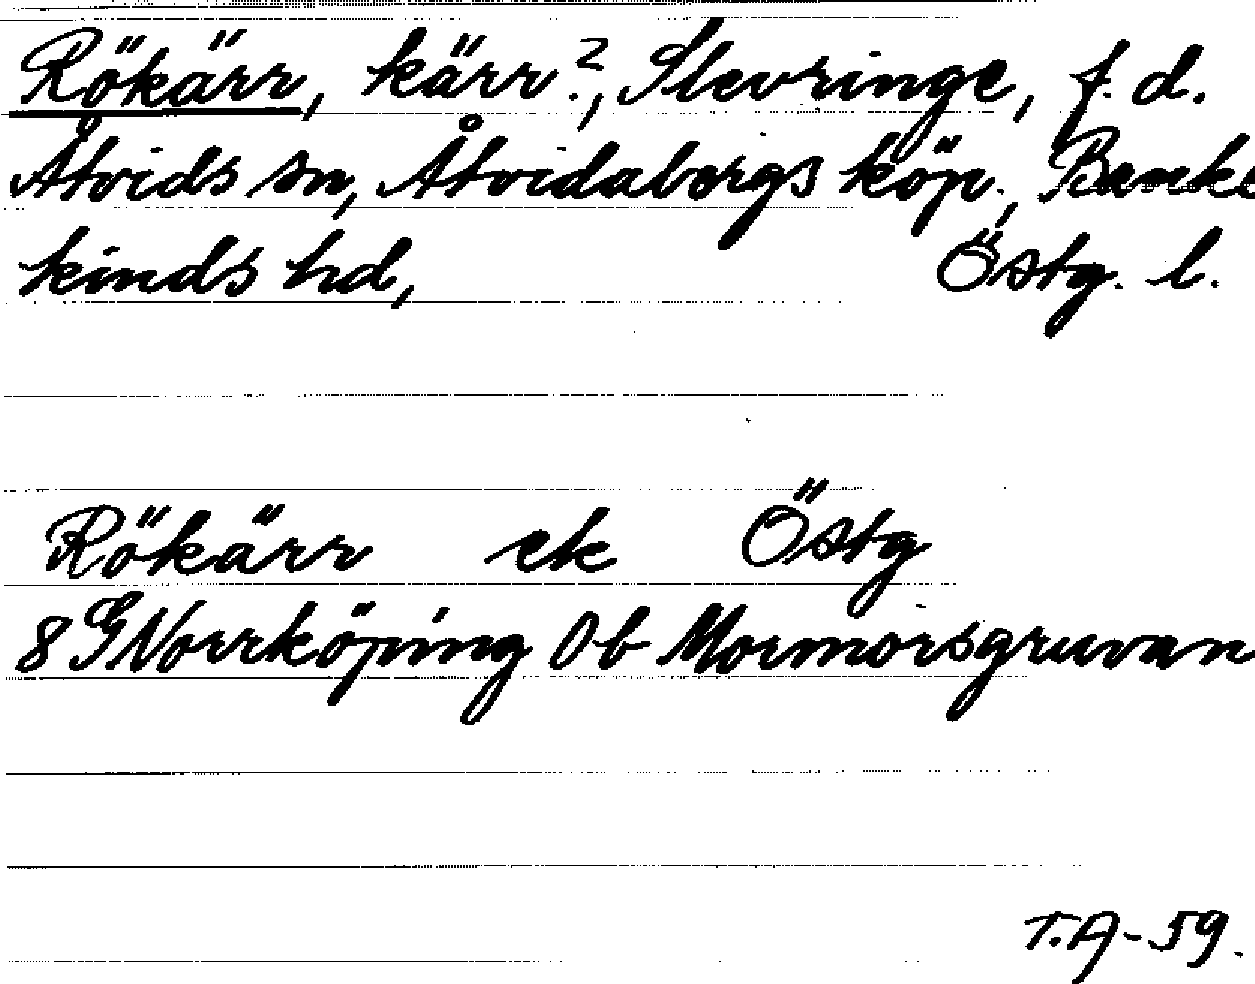 Rökärr, kärr?, Slevringe, f.d.
Åtvids sn, Åtvidabergs köp., Banke
kinds hd, Östg. l.
Rökärr ek Östg
8 G Norrköping 0b Mormorsgruvan
T.A-59.